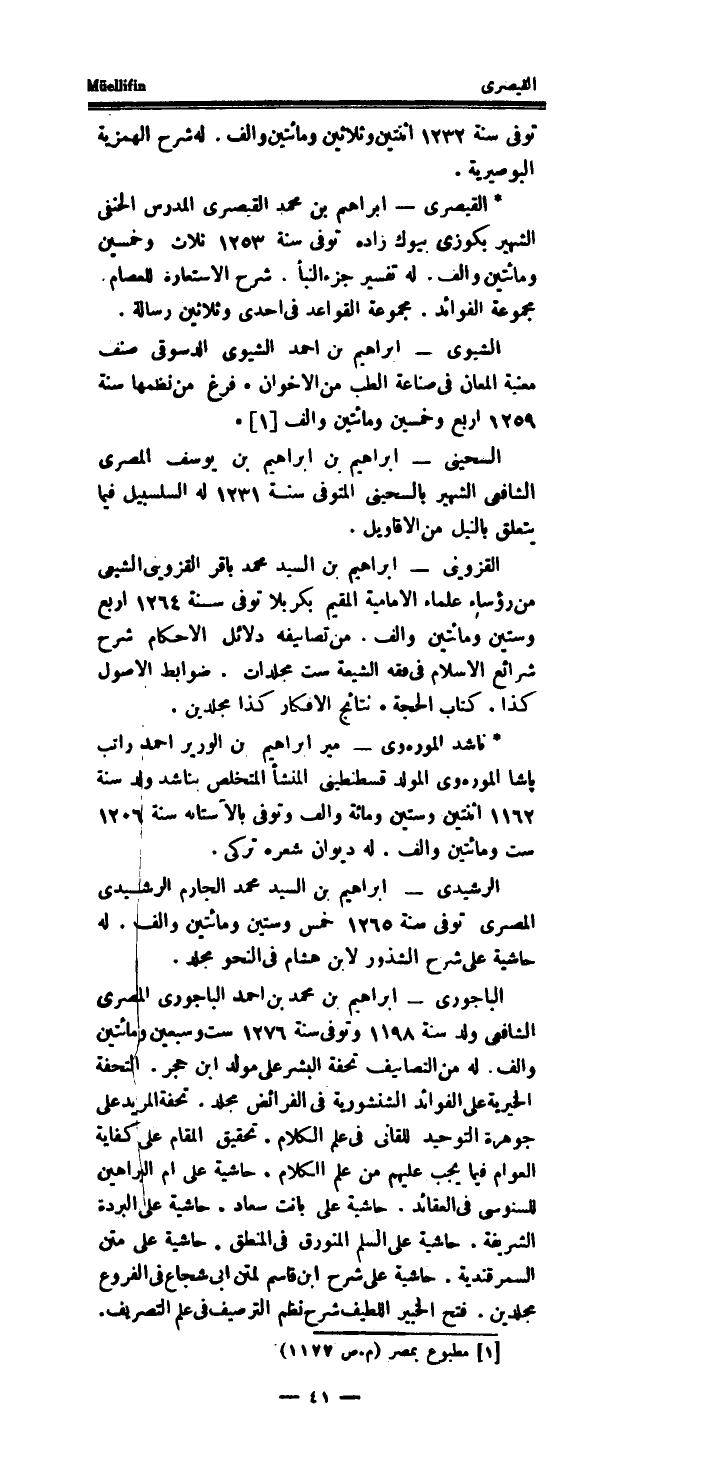 Müellifin القيصرى
توفى سنة ١٢٣٢ اثنتين وثلاثين ومائتين والف . له شرح الهمزية
البوصيرية .
* القيصرى — ابراهيم بن محمد القيصرى المدرس الحنفى
الشهير بكوزى بيوك زاده توفى سنة ١٢٥٣ ثلاث وخمسين
ومائتين والف . له تفسير جزء النبأ . شرح الاستعارة للعصام .
مجموعة الفوائد . مجموعة القواعد فى احدى وثلاثين رسالة .
الشيوى — ابراهيم بن احمد الشيوى الدسوقى صنف
معنية المعان فى صناعة الطب من الاخوان . فرغ من نظمها سنة
١٢٥٩ اربع وخمسين ومائتين والف [١] .
السحينى — ابراهيم بن ابراهيم بن يوسف المصرى
الشافعى الشهير بالسحينى المتوفى سنة ١٢٣١ له السلسبيل فيما
يتعلق بالنيل من الاقاويل .
القزوينى — ابراهيم بن السيد محمد باقر القزوينى الشيعى
من رؤساء علماء الامامية المقيم بكربلا توفى سنة ١٢٦٤ اربع
وستين ومائتين والف . من تصانيفه دلائل الاحكام شرح
شرائع الاسلام فى فقه الشيعة ست مجلدات . ضوابط الاصول
كذا . كتاب الحجة . نتائج الافكار كذا مجلدين .
* ناشد الموره‌وى — مير ابراهيم بن الوزير احمد راتب
پاشا الموره‌وى المولد قسطنطينى المنشأ المتخلص بناشد ولد سنة
١١٦٢ اثنتين وستين ومائة والف وتوفى بالآستانه سنة ١٢٠٦
ست ومائتين والف . له ديوان شعره تركى .
الرشيدى — ابراهيم بن السيد محمد الجارم الرشيدى
المصرى توفى سنة ١٢٦٥ خمس وستين ومائتين والف . له
حاشية على شرح الشذور لابن هشام فى النحو مجلد .
الباجورى — ابراهيم بن محمد بن احمد الباجورى المصرى
الشافعى ولد سنة ١١٩٨ وتوفى سنة ١٢٧٦ ست وسبعين ومائتين
والف . له من التصانيف تحفة البشر على مولد ابن حجر . التحفة
الخيرية على الفوائد الشنشورية فى الفرائض مجلد . تحفة المريد على
جوهرة التوحيد للقانى فى علم الكلام . تحقيق المقام على كفاية
العوام فيما يجب عليهم من علم الكلام . حاشية على ام البراهين
للسنوسى فى العقائد . حاشية على بانت سعاد . حاشية على البردة
الشريفة . حاشية على السلم المنورق فى المنطق . حاشية على متن
السمرقندية . حاشية على شرح ابن قاسم لمتن ابى شجاع فى الفروع
مجلدين . فتح الخبير اللطيف شرح نظم الترصيف فى علم التصريف .
[١] مطبوع بمصر (م.ص ١١٧٢)
— ٤١ —